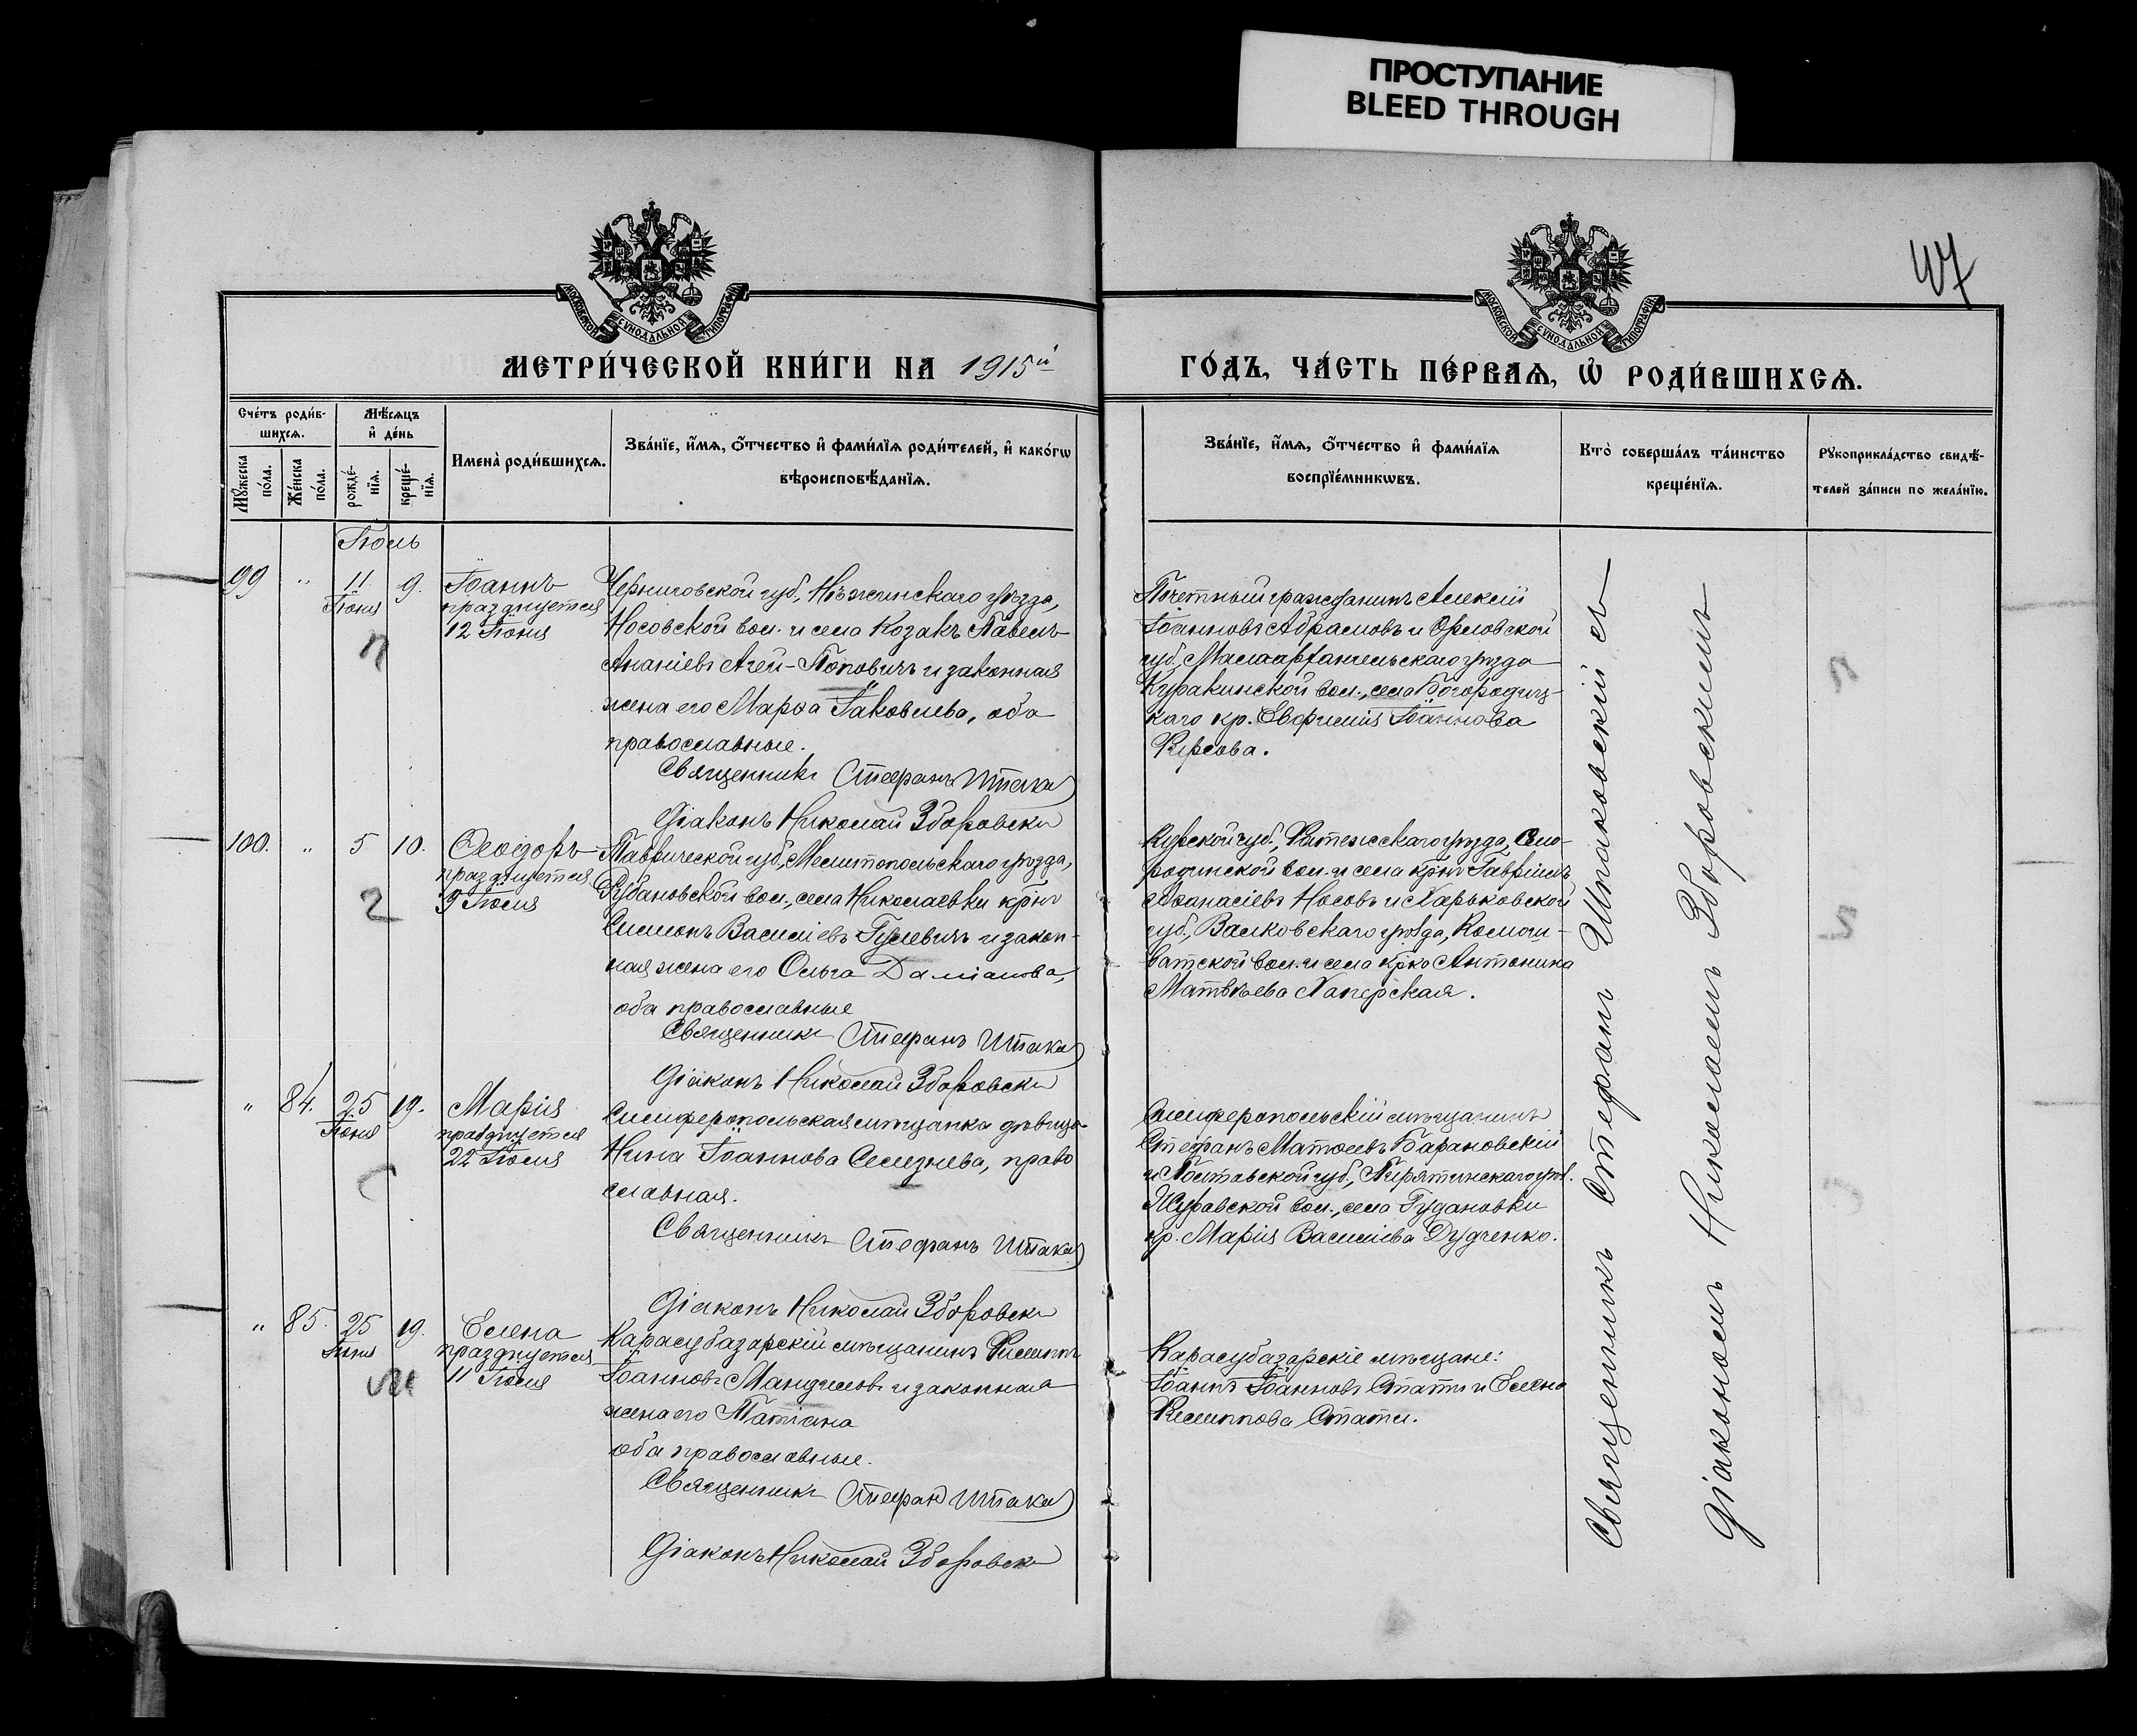 ПРОСТУПАНИЕ
BLEED THROUGH
47
МОСКОВСКОЙ СУНОДАЛЬНОЙ ТИПОГРАФІИ
МОСКОВСКОЙ СУНОДАЛЬНОЙ ТИПОГРАФІИ
МЕТРИ́ЧЕСКОЙ КНИ́ГИ НА 1915й
ГО́ДЪ, ЧА́СТЬ ПЕ́РВАѦ, Ѡ҆ РОДИ́ВШИХСѦ.
Сче́тъ роди́в-
шихсѧ.
Мꙋ́жеска по́ла.
Же́нска по́ла.
Мѣ́сѧцъ
и҆ де́нь
рожде́-
нїѧ.
креще́-
нїѧ.
Имена̀ роди́вшихсѧ.
Зва́нїе, и҆́мѧ, ѻ҆́тчество и҆ фами́лїѧ роди́телей, и҆ како́гѡ
вѣроисповѣ́данїѧ.
Зва́нїе, и҆́мѧ, ѻ҆́тчество и҆ фами́лїѧ
воспрїе́мникѡвъ.
Кто̀ соверша́лъ та́инство
креще́нїѧ.
Рꙋкоприкла́дство свидѣ́-
телей за́писи по жела́нїю.
Іюль
99 " 11 Іюня 9.
Іоаннъ
празднуется
12 Іюня
Черниговской губ., Нѣжинскаго уѣзда,
Носовской вол. и села Козакъ Павелъ
Ананіевъ Агей-Поповичъ и законная
жена его Марѳа Іаковлева, оба
православные.
Священникъ Стефанъ Шпака
Діаконъ Николай Зборовски
Почетный гражданинъ Алексій
Іоанновъ Абрамовъ и Орловской
губ., Малоархангельскаго уѣзда
Куракинской вол., села Богородиц-
каго кр. Евфимія Іоаннова
Фирсова.
100. " 5 10.
Ѳеодоръ
празднуется
9 Іюля
2
Таврической губ., Мелитопольскаго уѣзда,
Рубановской вол., села Николаевки крнъ
Симонъ Василіевъ Гулевичъ и закон-
ная жена его Ольга Даміанова,
оба православные
Священникъ Стефанъ Шпака
Діаконъ Николай Зборовски
Курской губ., Фатежскаго уѣзда, Смо-
родинской вол. и села крнъ Гавріилъ
Аѳанасіевъ Носовъ и Харьковской
губ., Валковскаго уѣзда, Коломи-
ватской вол. и села крка Антонина
Матвѣева Хаперская.
" 84. 25 Іюня 19.
Марія
празднуется
22 Іюля
Симферопольская мѣщанка дѣвица
Нина Іоаннова Селезнева, право
славная.
Священникъ Стефанъ Шпака
Діаконъ Николай Зборовски
Симферопольскій мѣщанинъ
Стефанъ Матѳеевъ Барановскій
и Полтавской губ., Пирятинскаго уѣз.
Журавской вол., села Гудановки
кр. Марія Василіева Дудченко.
" 85. 25 Іюня 19.
Елена
празднуется
11 Іюля
Карасубазарскій мѣщанинъ Филиппъ
Іоанновъ Мандиловъ и законная
жена его Татіана
оба православные.
Священникъ Стефанъ Шпака
Діаконъ Николай Зборовски
Карасубазарскіе мѣщане:
Іоаннъ Іоанновъ Стати и Елена
Филиппова Стати.
Священникъ Стефанъ Шпаковскій съ
Діакономъ Николаемъ Зборовскимъ